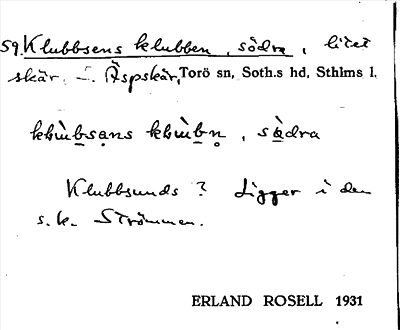 59. Klubbsens klubben, södra, litet
skär i Äspskär, Torö sn, Soth.s hd, Sthlms l.
södra
Klubbsunds? Ligger i den
s.k. Strömmen.
ERLAND ROSELL 1931